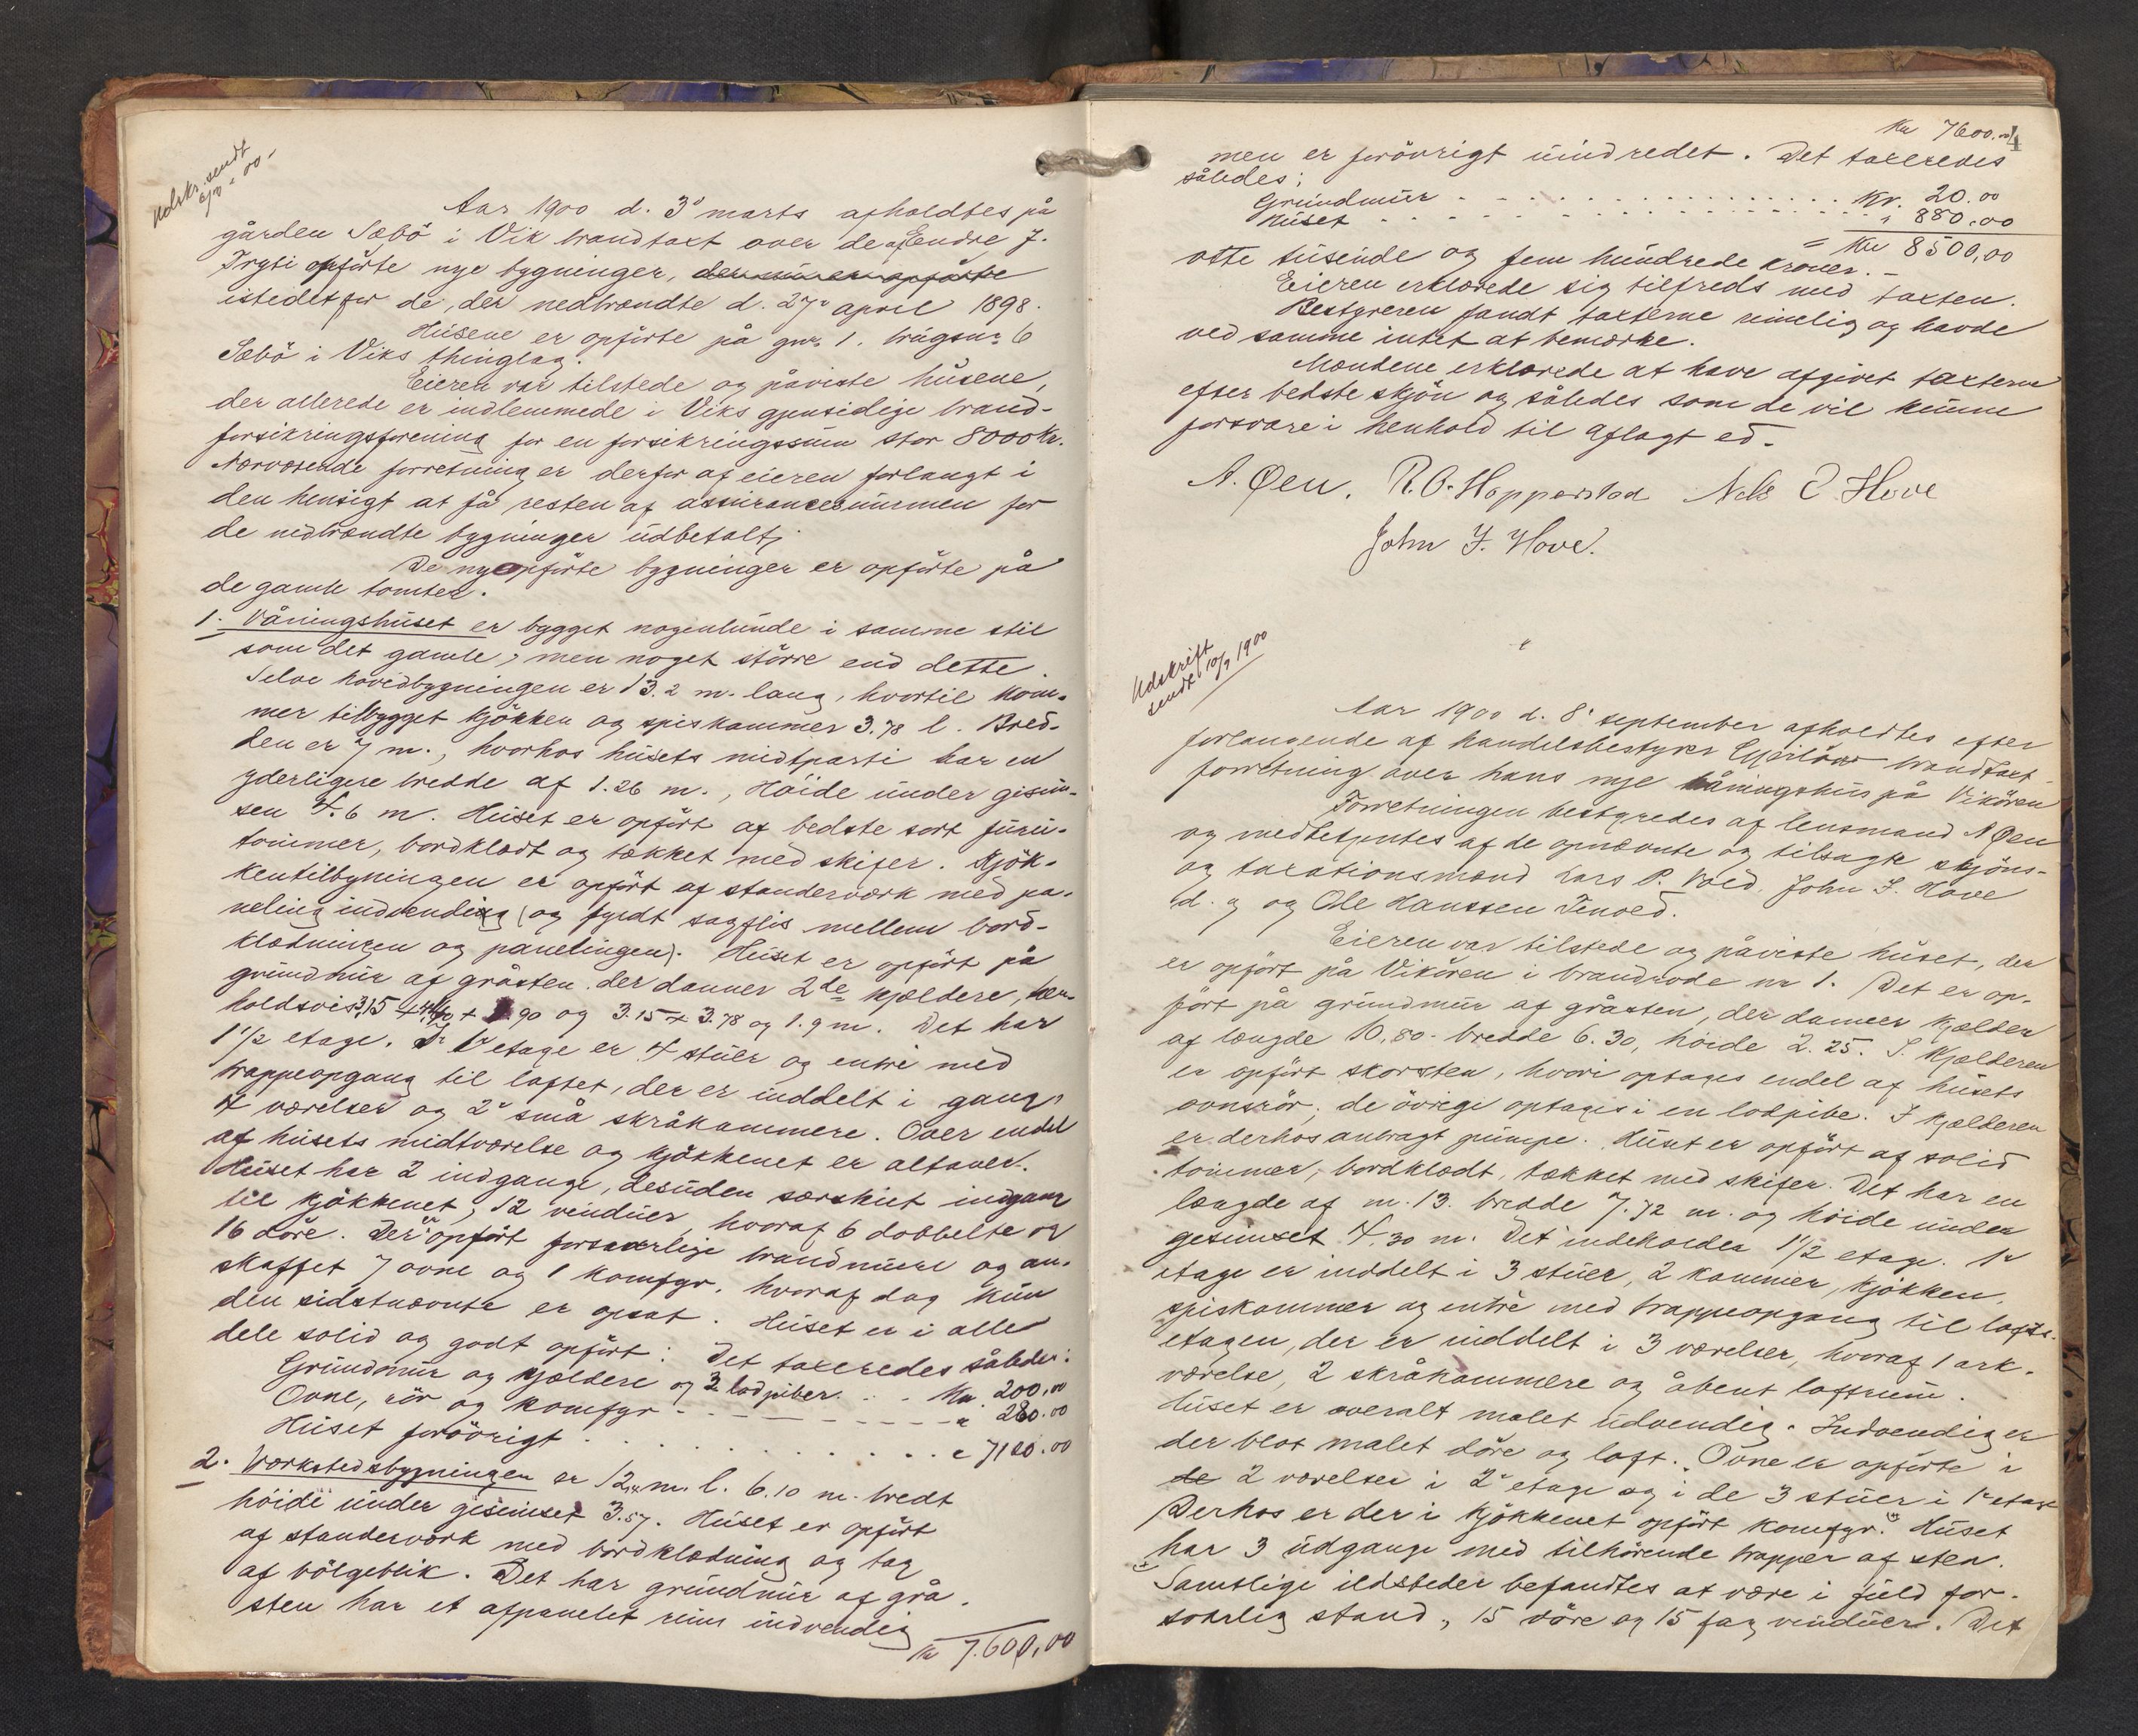 Udskr. sendt
6/3 - 00 -
Aar 1900 d. 3' marts afholdtes på
gården Sæbö i Vik brandtaxt over de af Endre J.
Tryti opförte nye bygninger, der nu er opförte
istedetfor de, der nedbrændte d. 27' april 1898.
Husene er opförte på gnr. 1. brugsnr 6
Sæbö i Viks thinglag.
Eieren var tilstede og påviste husene,
der allerede er indlemmede i Viks gjensidige brand-
forsikringsforening for en forsikringssum stor 8000 Kr.
Nærværende forretning er derfor af eieren forlangt i
den hensigt at få resten af assurancesummen for
de nedbrændte bygninger udbetalt;
De nyopförte bygninger er opförte på
de gamle tomter.
1. Våningshuset er bygget nogenlunde i samme stil
som det gamle, men noget större end dette.
Selve hovedbygningen er 13.2 m. lang, hvortil kom-
mer tilbygget kjökken og spiskammer 3.78 l. Bred-
den er 7 m., hvorhos husets midtparti har en
yderligere bredde af 1.26 m., Höide under gesim-
sen 4.6 m. Huset er opfört af bedste sort furu-
tömmer, bordklædt og tækket med skifer. Kjök-
kentilbygningen er opfört af standerværk med pa-
neling indvendig (og fyldt sagflis mellem bord-
klædningen og panelingen). Huset er opfört på
grundmur af gråsten der danner 2de kjældere, hen-
holdsvis 3,15 + 4.40 + 1.90 og 3.15 + 3.78 og 1.9 m. Det har
1 1/2 etage. I 1' etage er 4 stuer og entré med
trappeopgang til loftet, der er inddelt i gang,
4 værelser og 2' små skråkammere. Over endel
af husets midtværelse og kjökkenet er altaner.
Huset har 2 indgange, desuden særskilt indgang
til kjökkenet, 12 vinduer, hvoraf 6 dobbelte og
16 döre. Der er opfört forsvarlige brandmure og an-
skaffet 7 ovne og 1 komfyr, hvoraf dog kun
den sidstnævnte er opsat. Huset er i alle
dele solid og godt opfört: Det taxeredes således:
Grundmur og kjældere og 2 lodpiber . . . Kr. 200.00
Ovne, rör og komfyr - - - - - - - - - - " 280.00
Huset forövrigt . . . . . . . . . . . . " 7120.00
2. Værkstedsbygningen er 12 m. l. 6.10 m. bredt
höide under gesimset 3.57. Huset er opfört
af standerværk med bordklædning og tag
af bölgeblik. Det har grundmur af grå-
sten har et afpanelet rum indvendig
Kr 7.600,00
Kr 7600.00
4
men er forövrigt uindredet. Det taxeredes
således;
Grundmur - - - . . . . . . . . . . . . Kr. 20.00
Huset - - - - - . . . . . . . . . . . . " 880.00
= Kr 8500,00
otte tusinde og fem hundrede kroner. -
Eieren erklærede sig tilfreds med taxten.
Bestyreren fandt taxterne rimelig og havde
ved samme intet at bemærke.
Mændene erklærede at have afgivet taxterne
efter bedste skjön og således som de vil kunne
forsvare i henhold til aflagt ed.
A. Øen. R. O. Hopperstad Nils O. Hove
John J. Hove.
Udskrift
sendt 10/9 1900
Aar 1900 d. 8' september afholdtes efter
forlangende af handelsbestyrer brandtaxt-
forretning over hans nye våningshus på Vikören
Forretningen bestyredes af lensmand A Øen
og medbetjentes af de opnævnte og tilsagte skjöns-
og taxationsmænd Lars P. Voll. John J. Hove
d. y og Ole Hanssen Tenold.
Eieren var tilstede og påviste huset, der
er opfört på Vikören i brandrode nr 1. Det er op-
fört på grundmur af gråsten, der danner kjælder
af længde 10,80 - bredde 6.30, höide 2.25. I kjælderen
er opfört skorsten, hvori optages endel af husets
ovnsrör; de övrige optages i en lodpibe. I kjælderen
er derhos anbragt pumpe. Huset er opfört af solid
tömmer, bordklædt, tækket med skifer. Det har en
længde af m. 13. bredde 7.72 m. og höide under
gesimset 4.30 m. Det indeholder 1 1/2 etage. 1'
etage er inddelt i 3 stuer, 2 kammer, kjökken,
spiskammer og entré med trappeopgang til lofts-
etagen, der er inddelt i 3 værelser, hvoraf 1 ark-
værelse, 2 skråkammere og åbent loftrum.
Huset er overalt malet udvendig. Indvendig er
der blot malet döre og loft. Ovne er opförte i
de 2 værelser i 2' etage og i de 3 stuer i 1' etage
Derhos er der i kjökkenet opfört komfyr. Huset
har 3 udgange med tilhörende trapper af sten.
Samtlige ildsteder befandtes at være i fuld for-
svarlig stand, 15 döre og 15 fag vinduer. Det